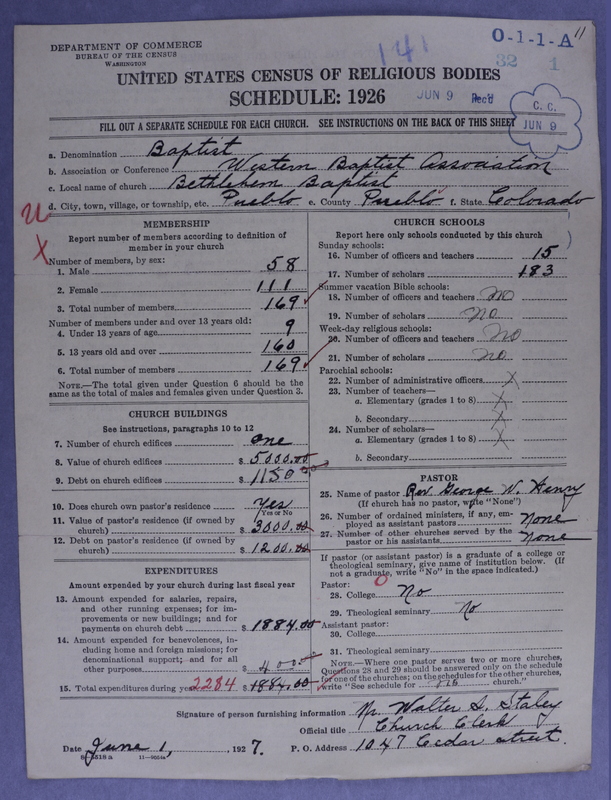 DEPARTMENT OF COMMERCE
BUREAU OF THE CENSUS
WASHINGTON
141
O-1-1-A 11
32 1
UNITED STATES CENSUS OF RELIGIOUS BODIES
SCHEDULE: 1926
JUN 9 Rec'd
C. C.
JUN 9
FILL OUT A SEPARATE SCHEDULE FOR EACH CHURCH. SEE INSTRUCTIONS ON THE BACK OF THIS SHEET
a. Denomination Baptist
b. Association or Conference Western Baptist Association
c. Local name of church Bethlehem Baptist
d. City, town, village, or township, etc. Pueblo e. County Pueblo f. State Colorado
U
X
MEMBERSHIP
Report number of members according to definition of
member in your church
Number of members, by sex:
1. Male 58
2. Female 111
3. Total number of members 169
Number of members under and over 13 years old:
4. Under 13 years of age 9
5. 13 years old and over 160
6. Total number of members 169
NOTE.—The total given under Question 6 should be the
same as the total of males and females given under Question 3.
CHURCH BUILDINGS
See instructions, paragraphs 10 to 12
7. Number of church edifices one
8. Value of church edifices $ 5000.00
9. Debt on church edifices $ 1150.00
10. Does church own pastor's residence? Yes
Yes or No
11. Value of pastor's residence (if owned by
church) $ 3000.00
12. Debt on pastor's residence (if owned by
church) $ 1200.00
EXPENDITURES
Amount expended by your church during last fiscal year
13. Amount expended for salaries, repairs,
and other running expenses; for im-
provements or new buildings; and for
payments on church debt $ 1884.00
14. Amount expended for benevolences, in-
cluding home and foreign missions; for
denominational support; and for all
other purposes $ 400.00
15. Total expenditures during year 2284 $ 1884.00
CHURCH SCHOOLS
Report here only schools conducted by this church
Sunday schools:
16. Number of officers and teachers 15
17. Number of scholars 183
Summer vacation Bible schools:
18. Number of officers and teachers no
19. Number of scholars No
Week-day religious schools:
20. Number of officers and teachers No
21. Number of scholars No
Parochial schools:
22. Number of administrative officers X
23. Number of teachers—
a. Elementary (grades 1 to 8) X
b. Secondary X
24. Number of scholars—
a. Elementary (grades 1 to 8) X
b. Secondary
PASTOR
25. Name of pastor Rev. George W. Henry
(If church has no pastor, write "None")
26. Number of ordained ministers, if any, em-
ployed as assistant pastors None
27. Number of other churches served by the
pastor or his assistants None
If pastor (or assistant pastor) is a graduate of a college or
theological seminary, give name of institution below. (If
not a graduate, write "No" in the space indicated.)
Pastor: 0
28. College No
29. Theological seminary No
Assistant pastor:
30. College
31. Theological seminary
NOTE.—Where one pastor serves two or more churches,
Questions 28 and 29 should be answered only on the schedule
for one of the churches; on the schedules for the other churches,
write "See schedule for church."
Signature of person furnishing information Mr. Walter S. Staley
Official title Church Clerk
Date June 1, 1927. P. O. Address 1047 Cedar street.
8-5518 a 11-9054a